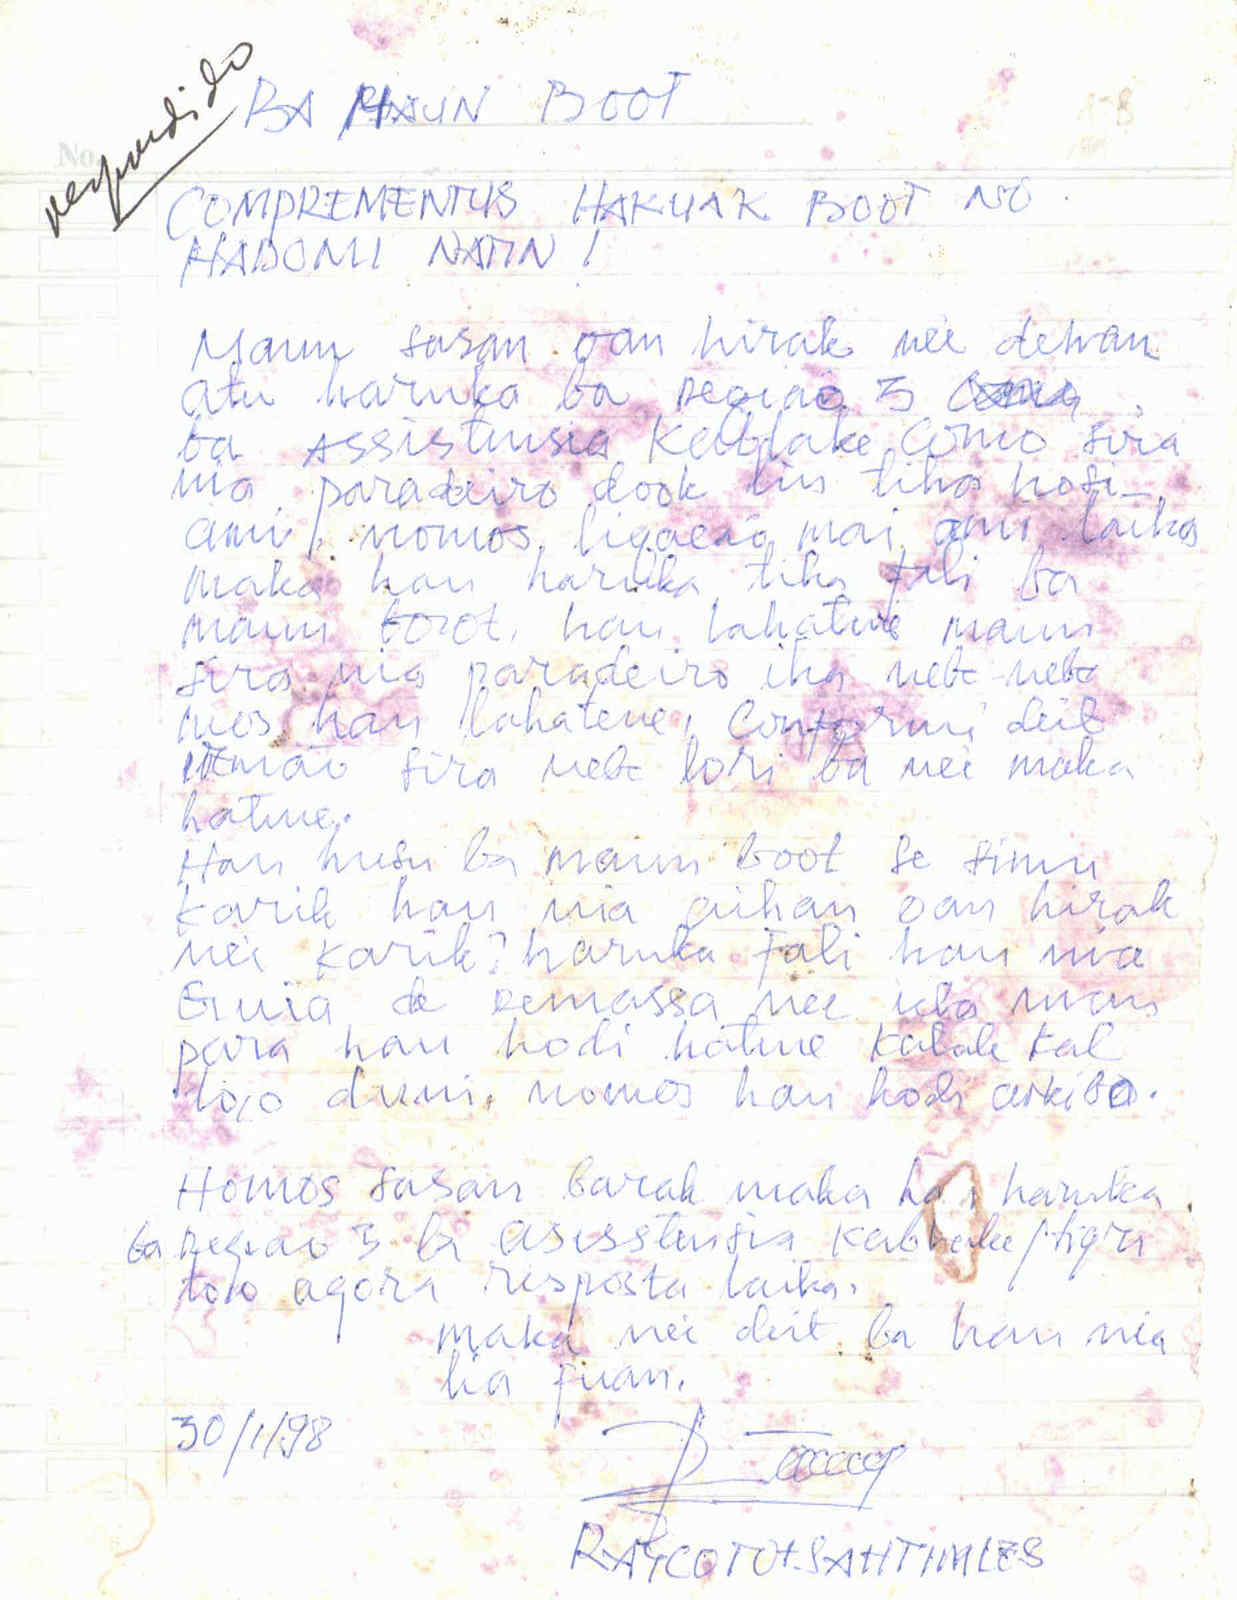 respondido
BA MAUN BOOT
No.
COMPREMENTUS HAKUAK BOOT NO
HADOMI NAFIN!
Maun sasan oan hirak nee dehan
atu haruka ba região 3
ba Assistensia Keblake Como sira
nia paradeiro dook liu tiha hosi
ami, nomos ligação mai ami laika
maka hau haruka tiha fali ba
maun boot, hau lahatene maun
sira nia paradeiro iha nebe-nebe
mos hau lahatene, Conformi deit
irmão sira nebe lori ba nee maka
hatene.
Hau husu ba maun boot se simu
karik hau nia oan hirak
nee karik? haruka fali hau nia
Guia de remassa nee ida mai
para hau hodi hatene kalak kal
to,o duni, nomos hau hodi arkiba.
Homos sasan barak maka hau haruka
ba região 3 ba asisstensia Kablake/
to,o agora resposta laika.
maka nee deit ba hau nia
lia fuan.
30/1/98